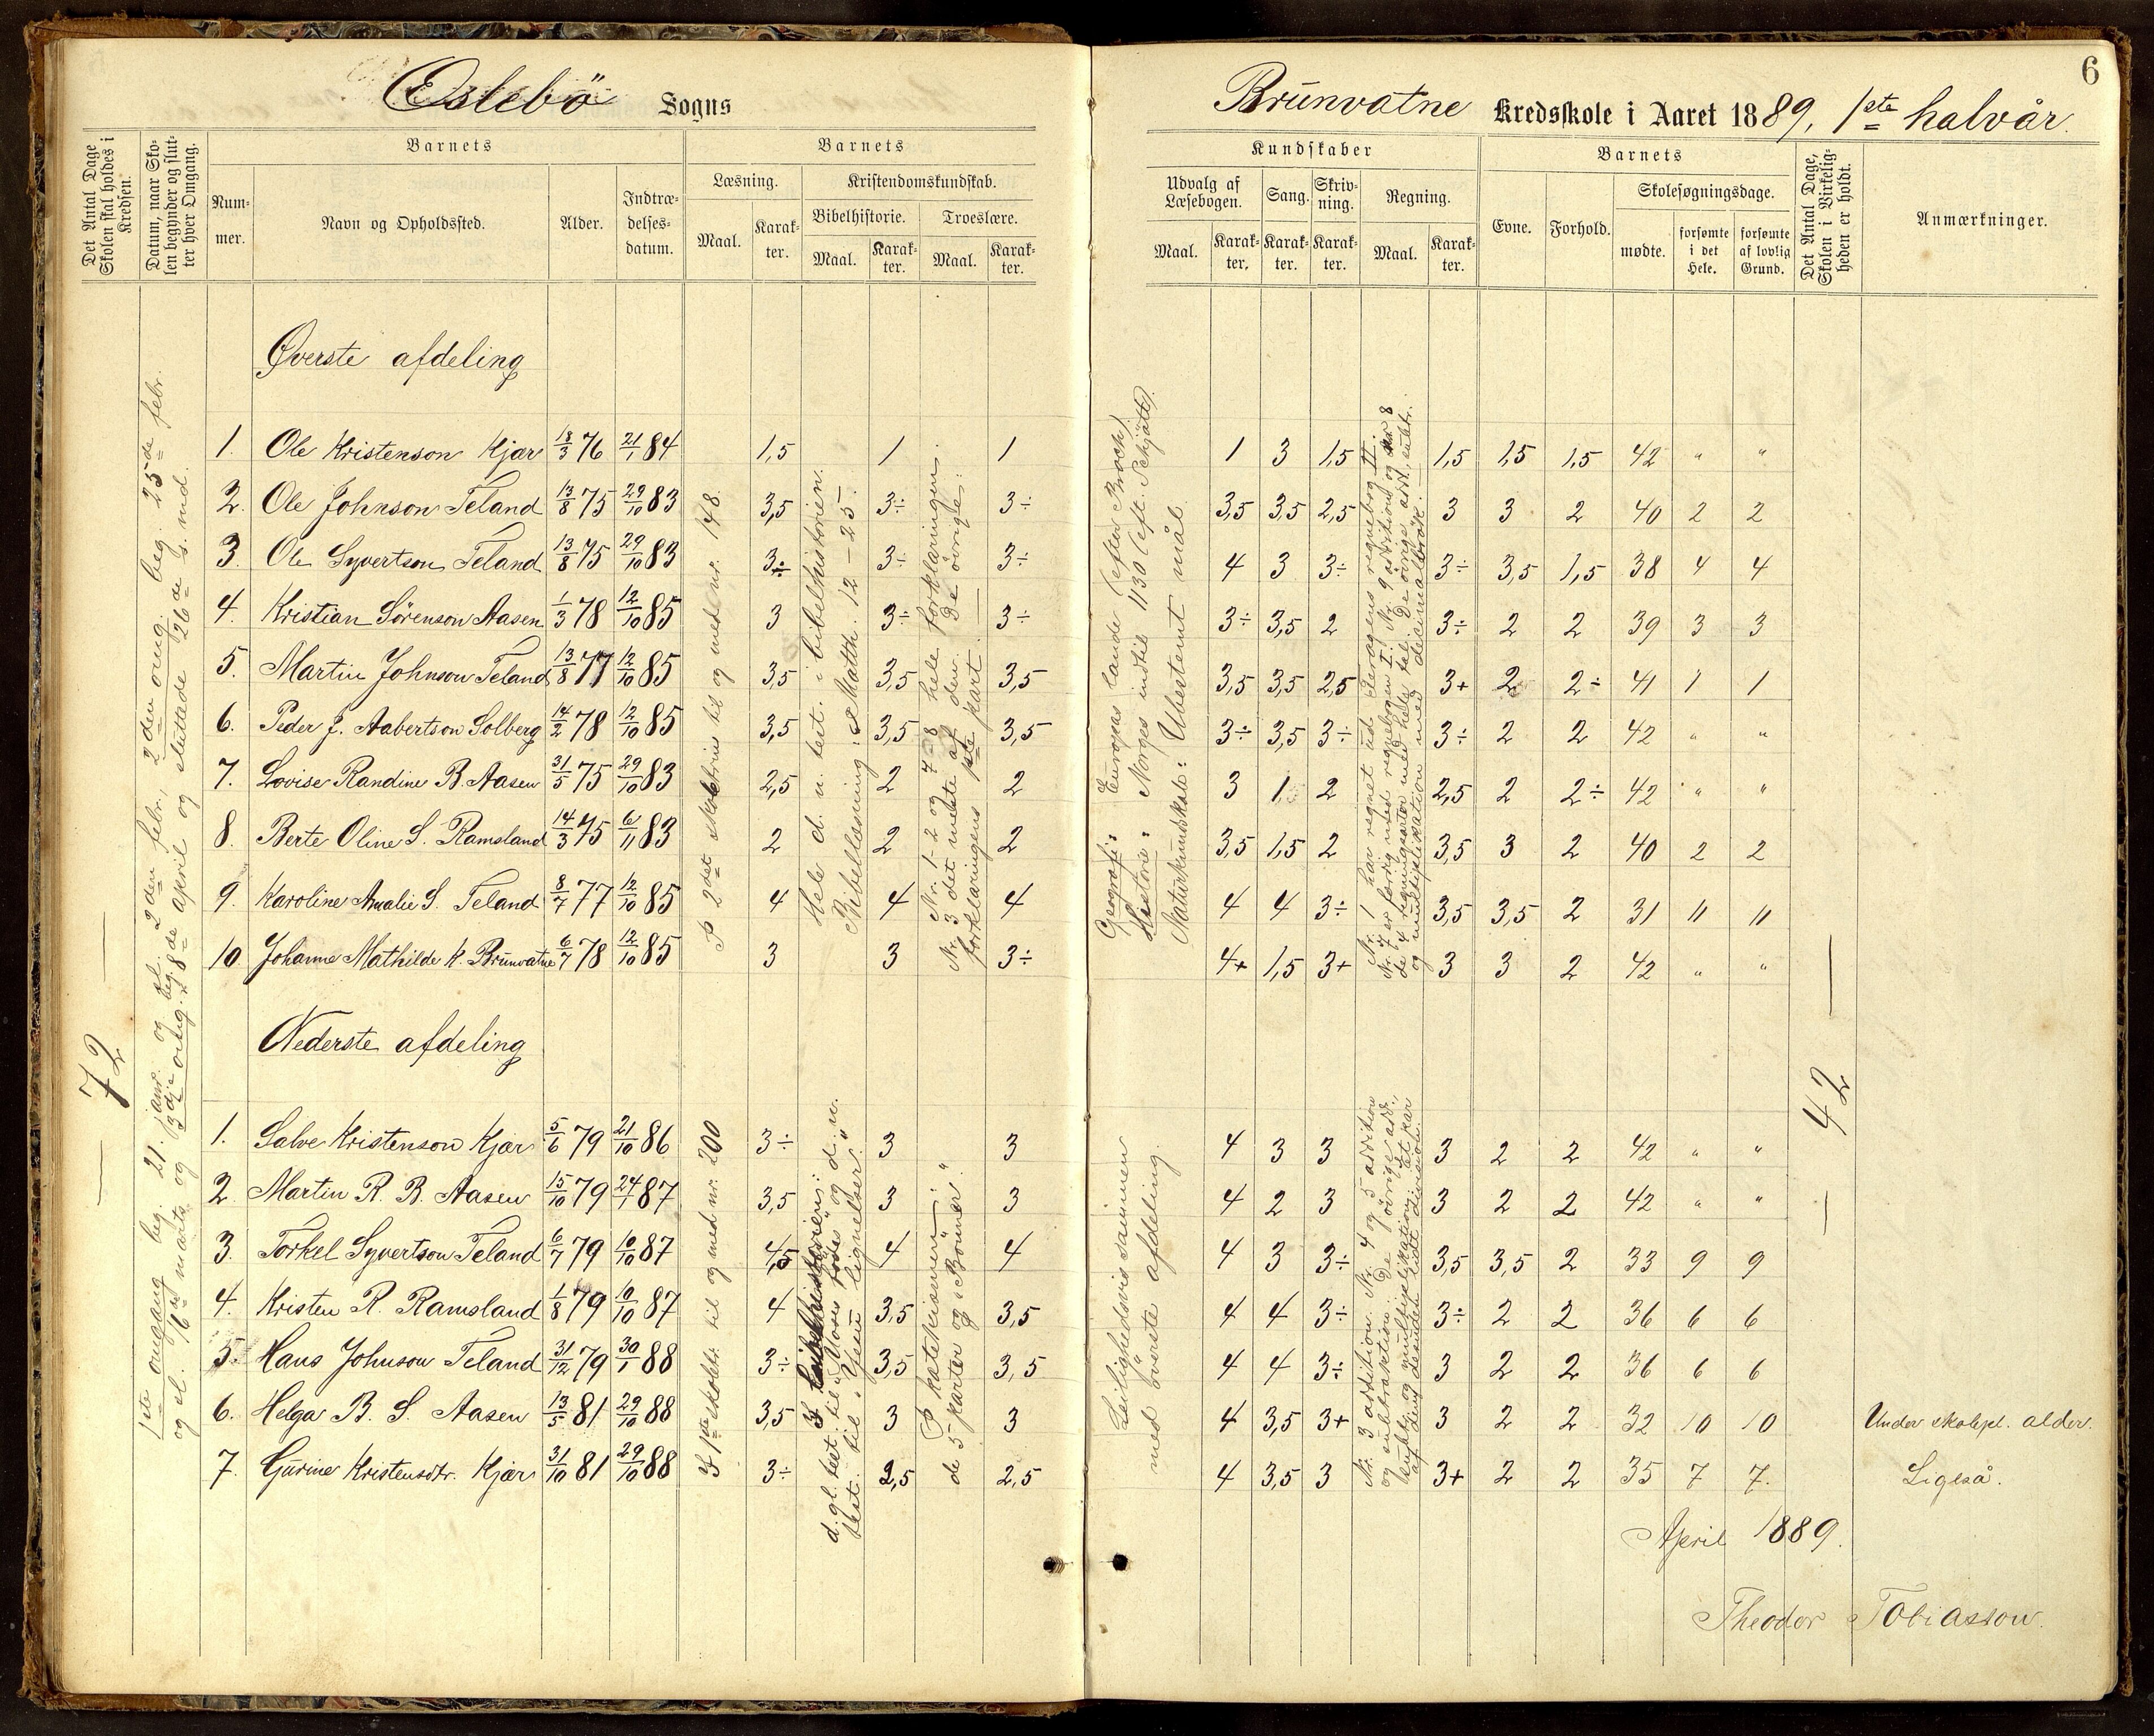 Øslebö Sogns
Brunvatne Kredsskole i Aaret 1889, 1ste halvår.
6
Det Antal Dage Skolen skal holdes i Kredsen.
Datum, naar Skolen begynder og slutter hver Omgang.
Barnets
Nummer.
Navn og Opholdssted.
Alder.
Indtrædelsesdatum.
Barnets
Læsning.
Maal.
Karakter.
Kristendomskundskab.
Bibelhistorie.
Maal.
Karakter.
Troeslære.
Maal.
Karakter.
Kundskaber
Udvalg af Læsebogen.
Maal.
Karakter.
Sang.
Karakter.
Skrivning.
Karakter.
Regning.
Maal.
Karakter.
Barnets
Evne.
Forhold.
Skolesøgningsdage.
mødte.
forsømte i det Hele.
forsømte af lovlig Grund.
Det Antal Dage, Skolen i Virkeligheden er holdt.
Anmærkninger.
— 72 —
1ste omgang beg. 21. janr. og sl. 2den febr., 2den omg. beg. 25de febr.
og sl. 16de marts og 3die omg. beg. 8de april og sluttede 26de s. md.
Øverste afdeling
1. Ole Kristenson Kjær 18/3 76 21/1 84 1,5 1 1 1 3 1,5 1,5 1,5 1,5 42 " "
2. Ole Johnson Teland 13/8 75 29/10 83 3,5 3÷ 3÷ 3,5 3,5 2,5 3 3 2 40 2 2
3. Ole Syvertson Teland 13/8 75 29/10 83 3÷ 3÷ 3÷ 4 3 3÷ 3÷ 3,5 1,5 38 4 4
4. Kristian Sörenson Aasen 1/3 78 12/10 85 3 3÷ 3÷ 3÷ 3,5 2 3÷ 2 2 39 3 3
5. Martin Johnson Teland 13/8 77 12/10 85 3,5 3,5 3,5 3,5 3,5 2,5 3+ 2 2÷ 41 1 1
6. Peder J. Aabertson Solberg 14/2 78 12/10 85 3,5 3,5 3,5 3÷ 3,5 3÷ 3÷ 2 2 42 " "
7. Lovise Randine B. Aasen 31/5 75 29/10 83 2,5 2 2 3 1 2 2,5 2 2÷ 42 " "
8. Berte Oline S. Ramsland 14/3 75 6/11 83 2 2 2 3,5 1,5 2 3,5 3 2 40 2 2
9. Karoline Amalie S. Teland 8/7 77 12/10 85 4 4 4 4 4 3÷ 3,5 3,5 2 31 11 11
10. Johanne Mathilde K. Brunvatne 6/7 78 12/10 85 3 3 3÷ 4+ 1,5 3+ 3 3 2 42 " "
P 2det skoletrin til og med nr. 148.
Hele d. n. test. i bibelhistorien.
Bibellæsning: Matth. 12 – 25.
Nr. 1. 2 og 7-8 hele forklaringen.
Nr. 3 det meste af den. De övrige:
forklaringens 1ste part.
Geografi: Europas lande (efter Broch)
Historie: Norges indtil 1130 (eft. Schjöth).
Naturkundskab: Ubestemt mål.
Nr. 1 har regnet ud Ziervogens regnebog II.
Nr. 7 er færdig med regnebogen I. Nr. 9 addition og nr 8
de 4 regningsarter med hele tal. De övrige add., subtr.
og multiplikation med decimalbrök.
Nederste afdeling
1. Salve Kristenson Kjær 5/6 79 21/10 86 3÷ 3 3 4 3 3 3 2 2 42 " "
2. Martin R. B. Aasen 15/10 79 24/1 87 3,5 3 3 4 2 3 3 2 2 42 " "
3. Torkel Syvertson Teland 6/7 79 10/10 87 4,5 4 4 4 3 3÷ 3,5 3,5 2 33 9 9
4. Kristen R. Ramsland 1/8 79 10/10 87 4 3,5 3,5 4 4 3÷ 3÷ 2 2 36 6 6
5. Hans Johnson Teland 31/12 79 30/1 88 3÷ 3,5 3,5 4 4 3÷ 3 2 2 36 6 6
6. Helga B. S. Aasen 13/5 81 29/10 88 3,5 3 3 4 3,5 3+ 3 2 2 32 10 10 Under skolepl. alder.
7. Gurine Kristensdtr. Kjær 31/10 81 29/10 88 3÷ 2,5 2,5 4 3,5 3 3+ 2 2 35 7 7. Ligeså.
I 1ste skoletr. til og med nr. 200
I bibelhistorien:
d. gl. test. til „Moses födes" og d. n.
test. til „Jesu lignelser".
P katekismen:
de 5 parter og „Bönner".
Leilighedsvis sammen
med överste afdeling.
Nr. 3 addition. Nr. 4 og 5 addition
og subtraktion. De övrige add.,
subtr. og multiplikation, et par
af dem desuden lidt division.
— 42 —
April 1889.
Theodor Tobiasson.